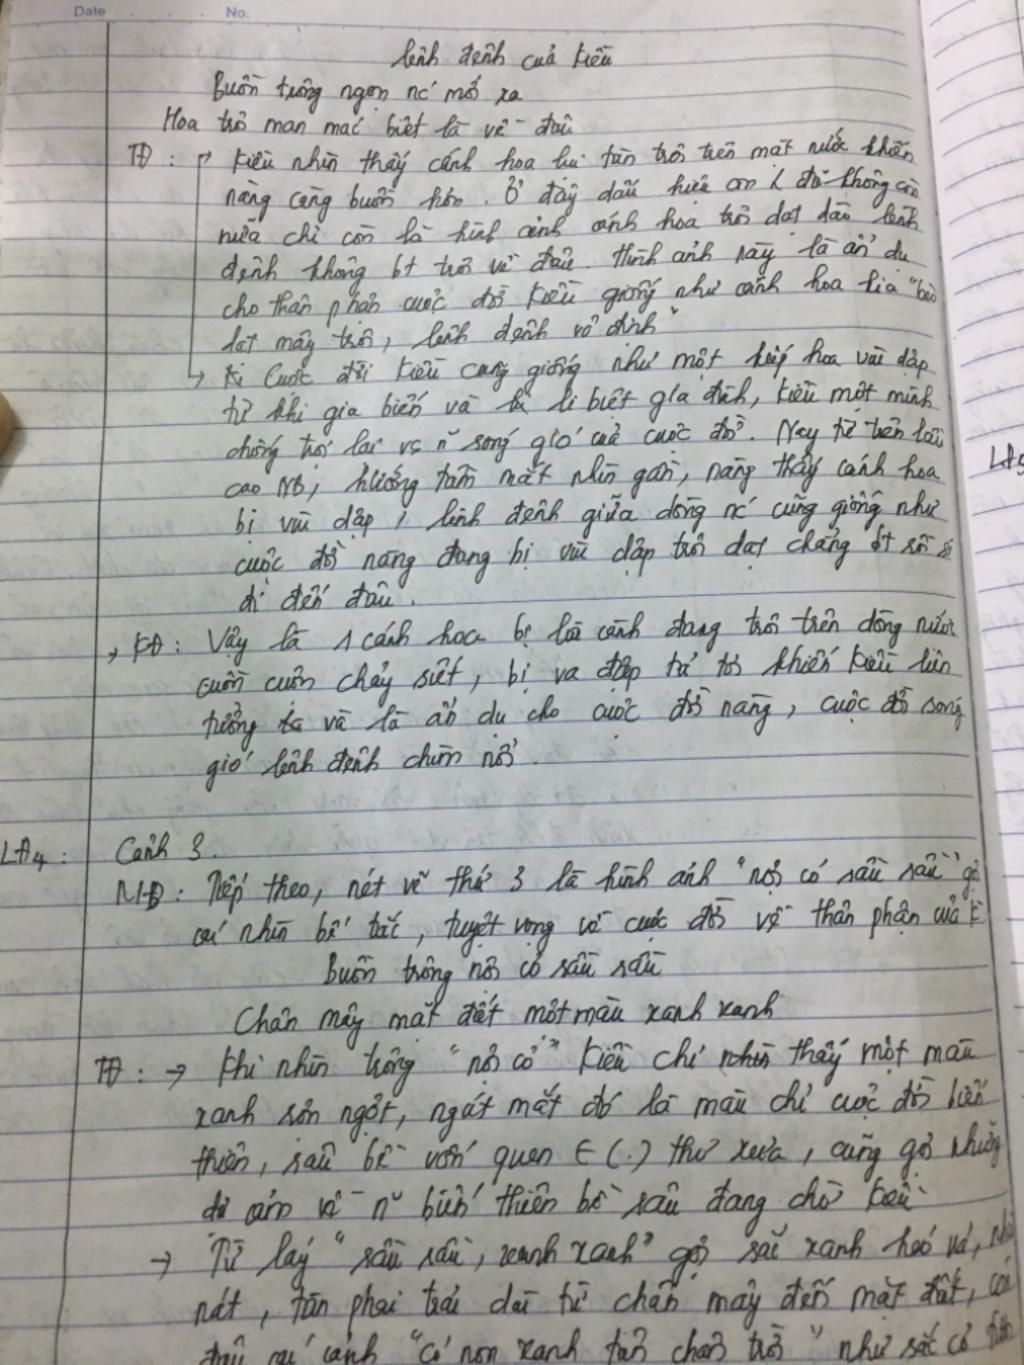 Date No.
lênh đênh của Kiều
Buồn trông ngọn nc mới xa
Hoa trôi man mác biết là về đâu
TĐ: Kiều nhìn thấy cánh hoa tàn trôi trên mặt nước khiến
nàng càng buồn hơn. Ở đây dấu hiệu con đò không còn
nữa chỉ còn là hình ảnh cánh hoa trôi dạt dào lênh
đênh không bt trôi về đâu. Hình ảnh này là ẩn dụ
cho thân phận cuộc đời Kiều giống như cánh hoa kia "bèo
dạt mây trôi, lênh đênh vô định"
Cuộc đời Kiều cũng giống như một kiếp hoa vùi dập
từ khi gia biến và li biệt gia đình, Kiều một mình
chống trọi lại vs n~ sóng gió của cuộc đời. Nay từ trên lầu
cao NB, hướng tầm mắt nhìn gần, nàng thấy cánh hoa
bị vùi dập, lênh đênh giữa dòng nc cũng giống như
cuộc đời nàng đang bị vùi dập trôi dạt chẳng bt sẽ
đi đến đâu.
KĐ: Vậy là 1 cánh hoa bị lìa cành đang trôi trên dòng nước
cuồn cuộn chảy siết, bị va đập tả tơi khiến Kiều liên
tưởng và là ẩn dụ cho cuộc đời nàng, cuộc đời sóng
gió lênh đênh chìm nổi.
LĐ4: Cảnh 3.
MĐ: Tiếp theo, nét vẽ thứ 3 là hình ảnh "nội cỏ sầu sầu" gợi
cái nhìn bế tắc, tuyệt vọng về cuộc đời về thân phận của K
Buồn trông nội cỏ sầu sầu
Chân mây mặt đất một màu xanh xanh
TĐ: → Khi nhìn trông "nội cỏ" Kiều chỉ nhìn thấy một màu
xanh sờn ngợt, ngát mắt đó là màu chỉ cuộc đời biến
thiên, sầu bể vốn quen ∈ (.) thơ xưa, cũng gợi những
dự cảm về n~ biến thiên bể sầu đang chờ Kiều
→ Từ láy "sầu sầu, xanh xanh" gợi sắc xanh héo úa,
nát, tàn phai trải dài từ chân mây đến mặt đất,
đâu cái cảnh "Cỏ non xanh tận chân trời" như sắc cỏ